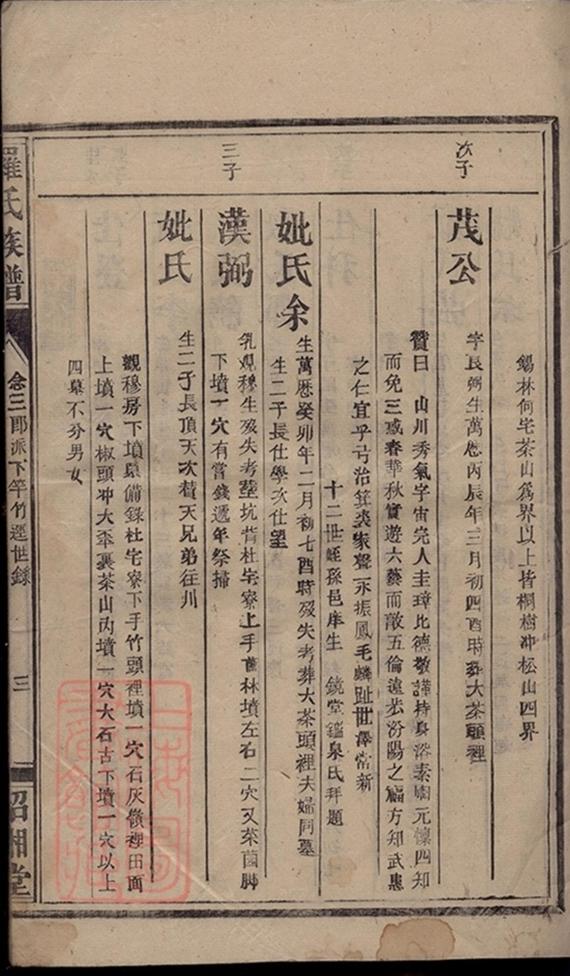 錫林何宅茶山為界以上皆桐樹冲松山四界
次子
茂公
字長弼生萬歷丙辰年三月初四酉時葬大茶頭裡
贊曰 山川秀氣宇宙完人圭璋比德敬謹持身浴素園元懷四知
而免三惑春華秋實遊六藝而敵五倫遠汾陽之方知武
之仁宜乎弓冶箕裘家聲永振鳳毛麟趾世澤常新
十二世姪孫邑庠生 鏡堂鑑泉氏拜題
妣氏余
生萬歷癸卯年二月初七酉時歿失考葬大茶頭裡夫婦同墓
生二子長仕學次仕望
三子
漢弼
乳觀穆生歿失考塟坑背杜宅寮上手林墳左右二穴又茶園脚
下墳一穴有嘗錢遞年祭掃
妣氏
生二子長頂天次贊天兄弟往川
觀穆房下墳墓備錄杜宅寮下手竹頭裡墳一穴石灰裡田面
上墳一穴椒頭冲大裏茶山內墳一穴大石古下墳一穴以上
四墓不分男女
羅氏族譜
念三郎派下竿竹逕世錄
三